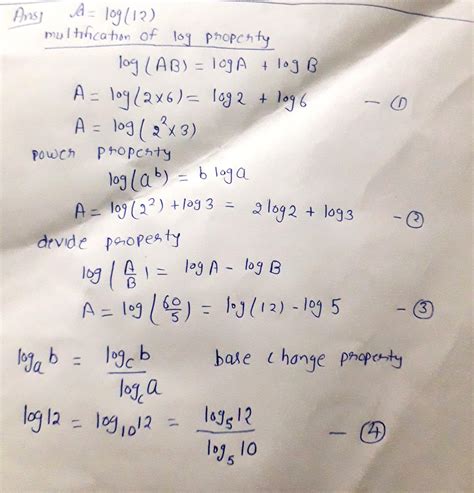 Ans) A = log(12)
multification of log property
log(AB) = log A + log B
A = log(2×6) = log 2 + log 6 — ①
A = log(2²×3)
power property
log(a^b) = b log a
A = log(2²) + log 3 = 2 log 2 + log 3 — ②
devide property
log(A/B) = log A - log B
A = log(60/5) = log(12) - log 5 — ③
log_a b = log_c b / log_c a base change property
log 12 = log_10 12 = log_5 12 / log_5 10 — ④